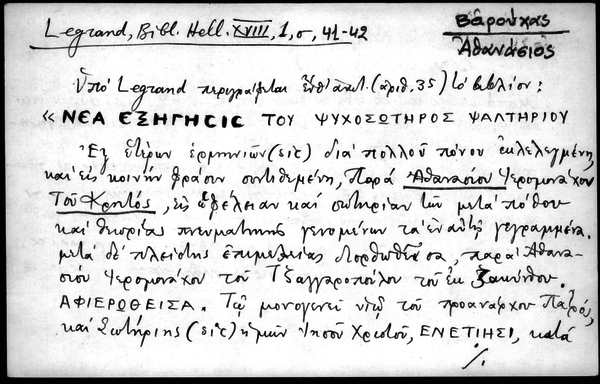 Legrand, Bibl. Hell. XVIII, 1, σ, 41-42
Βαρούχας
Ἀθανάσιος
Ὑπό Legrand περιγράφεται (ἀριθ. 35) τό βιβλίον:
« ΝΕΑ ΕΞΗΓΗΣΙΣ ΤΟΥ ΨΥΧΟΣΩΤΗΡΟΣ ΨΑΛΤΗΡΙΟΥ
Ἐξ ἑτέρων ἑρμηνιῶν (sic) διά πολλοῦ πόνου ἐκλελεγμένη,
καί εἰς κοινήν φράσιν συντιθεμένη, Παρά Ἀθανασίου Ἱερομονάχου
Τοῦ Κρητός, εἰς ὠφέλειαν καί σωτηρίαν τῶν μετά πόθου
καί θεωρίας πνευματικῆς γενομένων τά ἐν αὐτῇ γεγραμμένα.
μετά δέ πλείστης ἐπιμελείας διορθωθεῖσα, παρά Ἀθανα-
σίου Ἱερομονάχου τοῦ Τζαγγαροπούλου τοῦ ἐκ Ζακύνθου.
ΑΦΙΕΡΩΘΕΙΣΑ. Τῷ μονογενεῖ υἱῷ τοῦ προανάρχου Πατρός,
καί Σωτήρης (sic) ἡμῶν Ἰησοῦ Χριστοῦ, ΕΝΕΤΙΗΣΙ, κατά
·/.